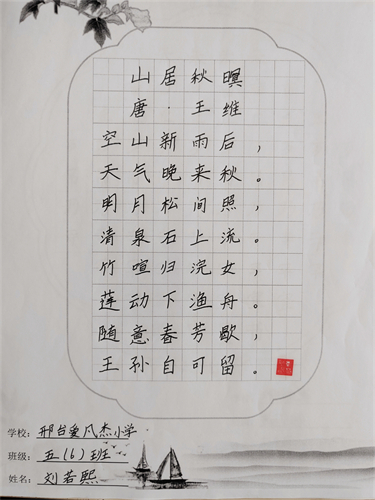 山居秋暝
唐·王维
空山新雨后，
天气晚来秋。
明月松间照，
清泉石上流。
竹喧归浣女，
莲动下渔舟。
随意春芳歇，
王孙自可留。
学校：邢台爱凡杰小学
班级：五（6）班
姓名：刘若熙